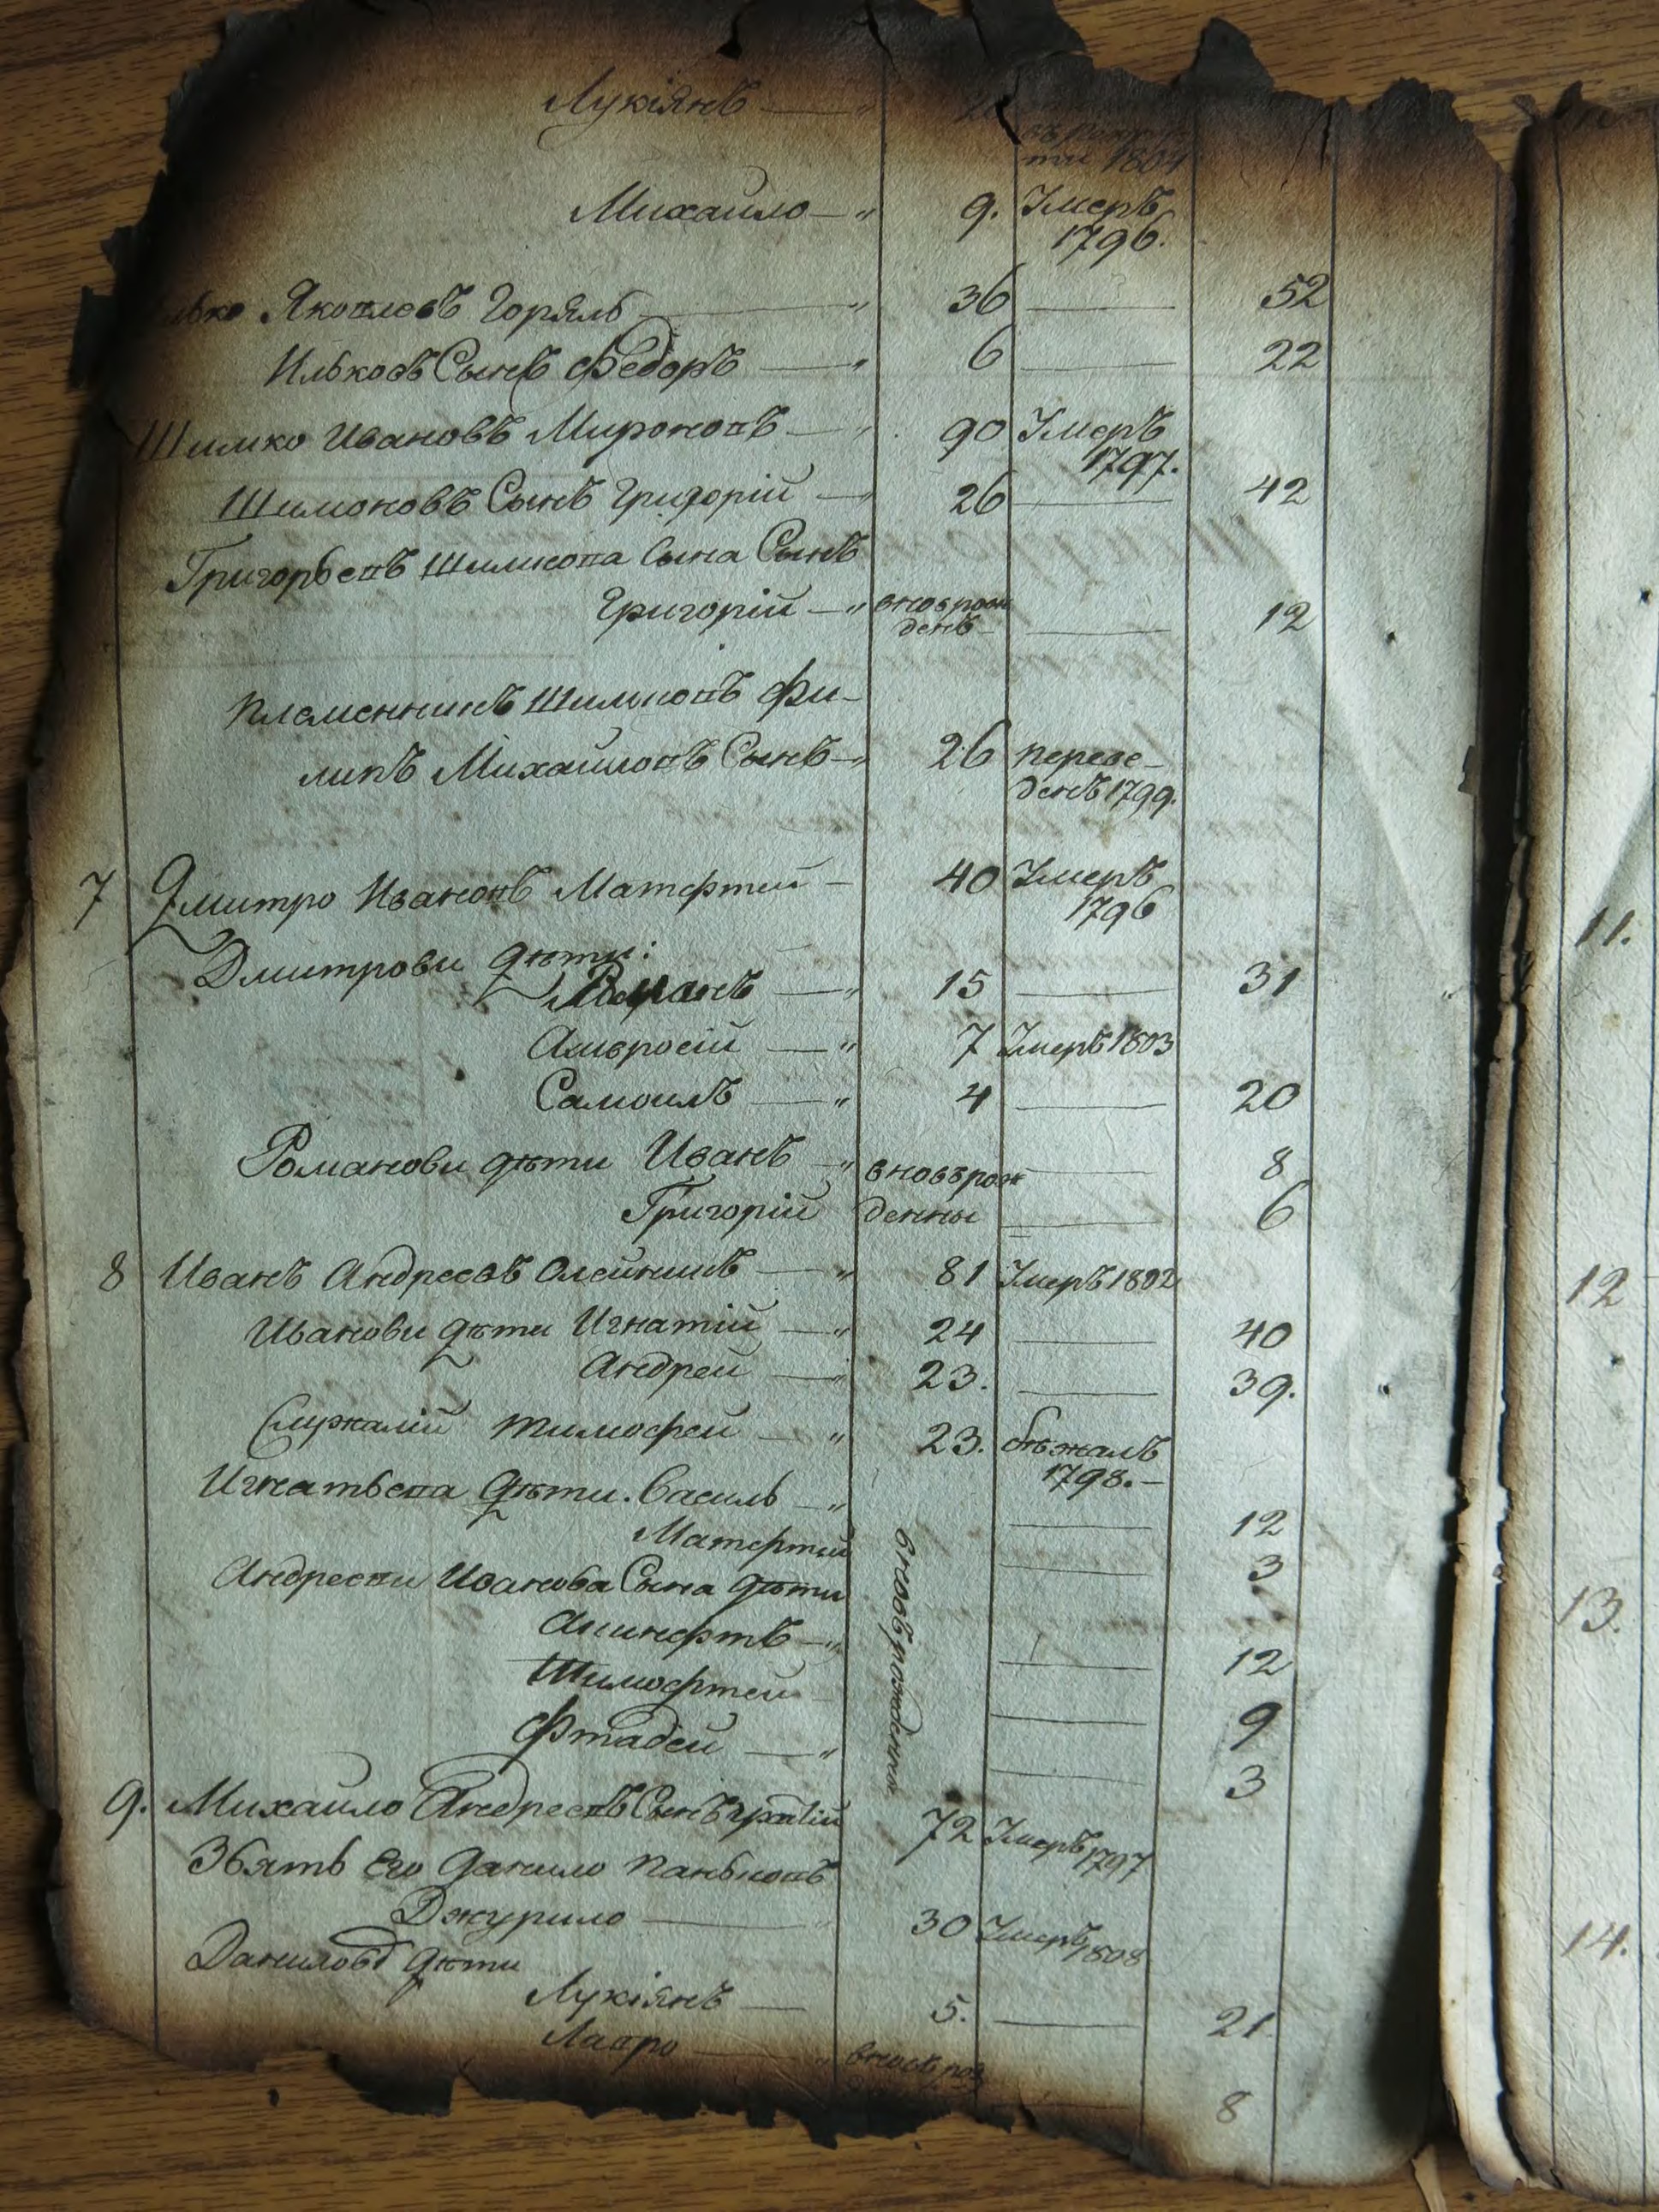 Лукіянъ — „
въ рекру
ти 1804
Михайло — „ 9. Умеръ
1796.
Яковлевъ Горяль — „ 36 — 52
Ильковъ Сынъ Федоръ — „ 6 — 22
Шимко Ивановъ Мироновъ — „ 90 Умеръ
1797.
Шимоновъ Сынъ Григорій — „ 26 — 42
Григорьевъ Шимкова Сына Сынъ
Григорій — „ вновърож
денъ — 12
Племенникъ Шимковъ Фи-
липъ Михайловъ Сынъ — „ 26 переве-
денъ 1799.
7 Дмитро Ивановъ Матфтей — 40 Умеръ
1796
Дмитрови дѣти:
Романъ — „ 15 — 31
Амвросій — „ 7 Умеръ 1803
Самоилъ — „ 4 — 20
Романови дѣти Иванъ „ вновърож — 8
Григорій денны — 6
8 Иванъ Андреевъ Олейникъ — „ 81 Умеръ 1802
Иванови дѣти Игнатій — „ 24 — 40
Андрей — „ 23. — 39.
Служалій Тимофей — „ 23. бѣжалъ
1798. —
Игнатьева дѣти. Василь — „ — 12
Матфтей — 3
вновърожденны
Андрееви Иванова Сына дѣти
— „ — 12
Тимофтей — 9
Фтадей — „ — 3
9. Михайло Андреевъ Сынъ 72 Умеръ 1797
Збять Его Данило Паньковъ
Джурило — „ 30 Умеръ 1808
Данилові дѣти
Лукіянъ — 5. — 21
Лавро — „ вновъ рож — 8
11.
12
13.
14.